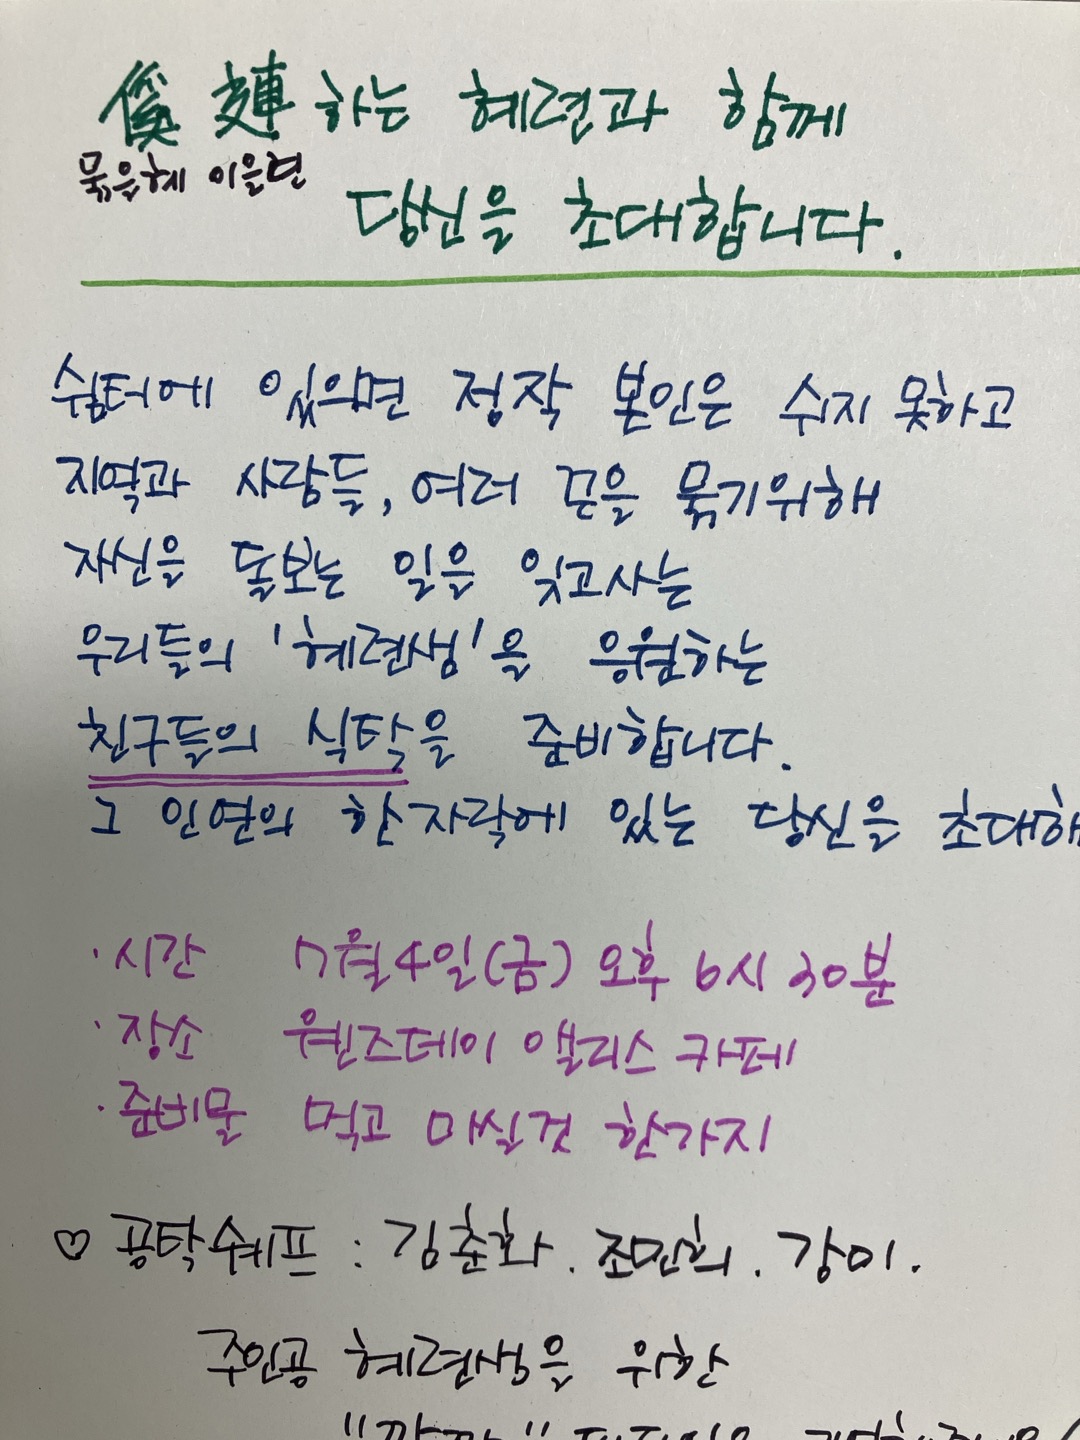 傒 連하는 혜련과 함께
묶을혜 이을련
당신을 초대합니다.
쉼터에 있으면 정작 본인은 쉬지 못하고
지역과 사람들, 여러 끈을 묶기위해
자신을 돌보는 일을 잊고사는
우리들의 '혜련샘'을 응원하는
친구들의 식탁을 준비합니다.
그 인연의 한자락에 있는 당신을 초대해
· 시간 7월4일(금) 오후 6시 30분
· 장소 웬즈데이 앨리스 카페
· 준비물 먹고 마실것 한가지
♡ 공탁쉐프 : 김춘화. 조민희. 강미.
주인공 혜련샘을 위한